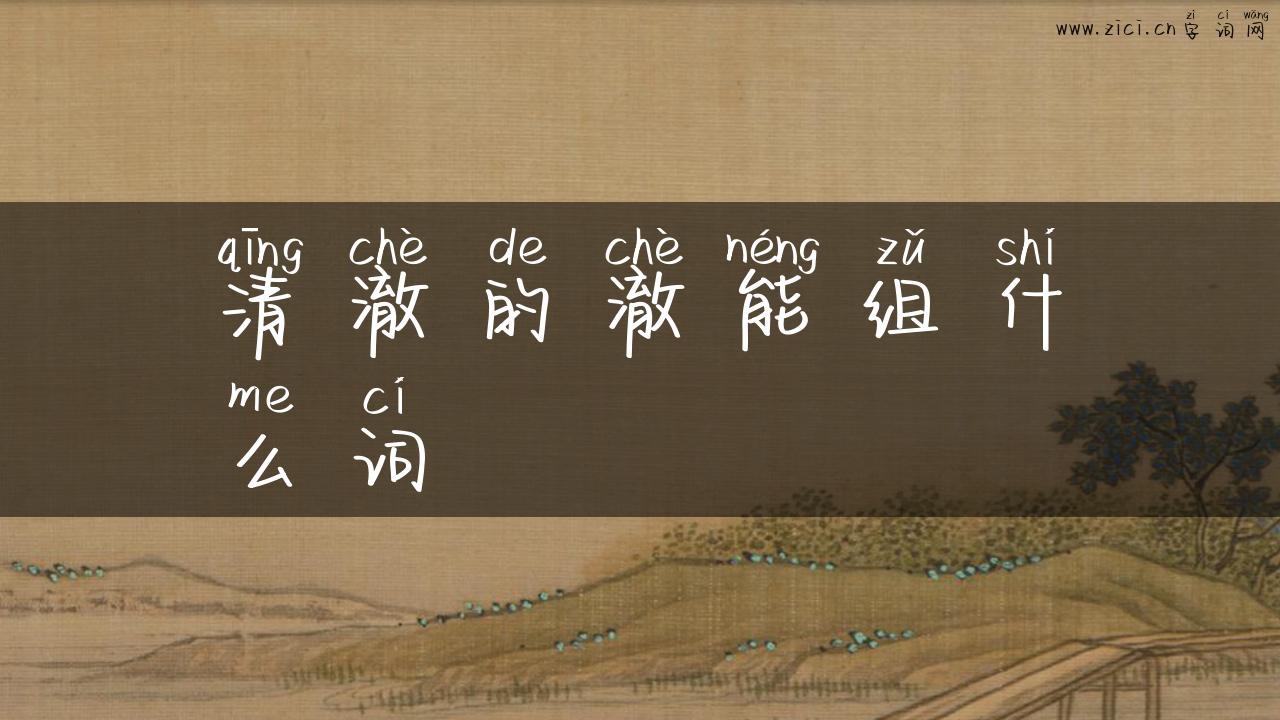 zì cí wǎng
www.zici.cn 字词网
qīng chè de chè néng zǔ shí
清澈的澈能组什
me cí
么词